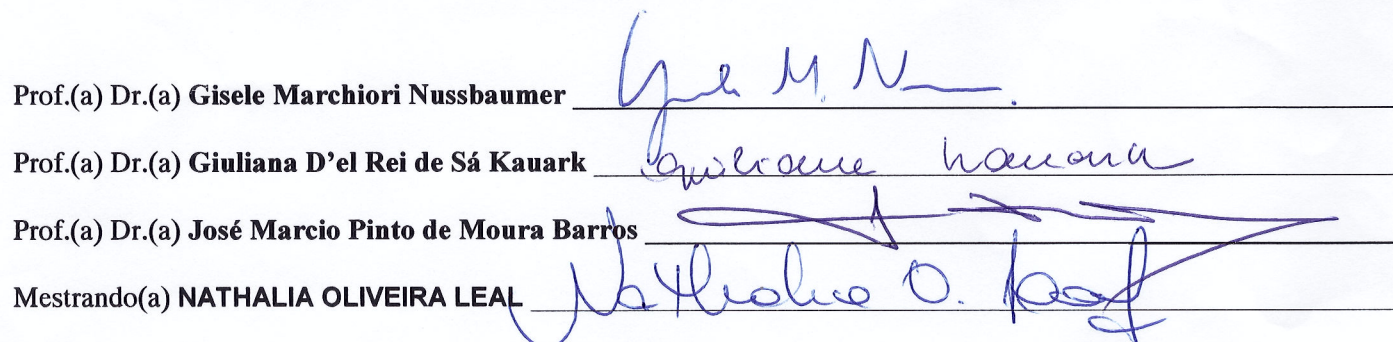 Prof.(a) Dr.(a) Gisele Marchiori Nussbaumer M. N
Prof.(a) Dr.(a) Giuliana D'el Rei de Sá Kauark Giuliana Kauark
Prof.(a) Dr.(a) José Marcio Pinto de Moura Barros
Mestrando(a) NATHALIA OLIVEIRA LEAL Nathalia O. Leal